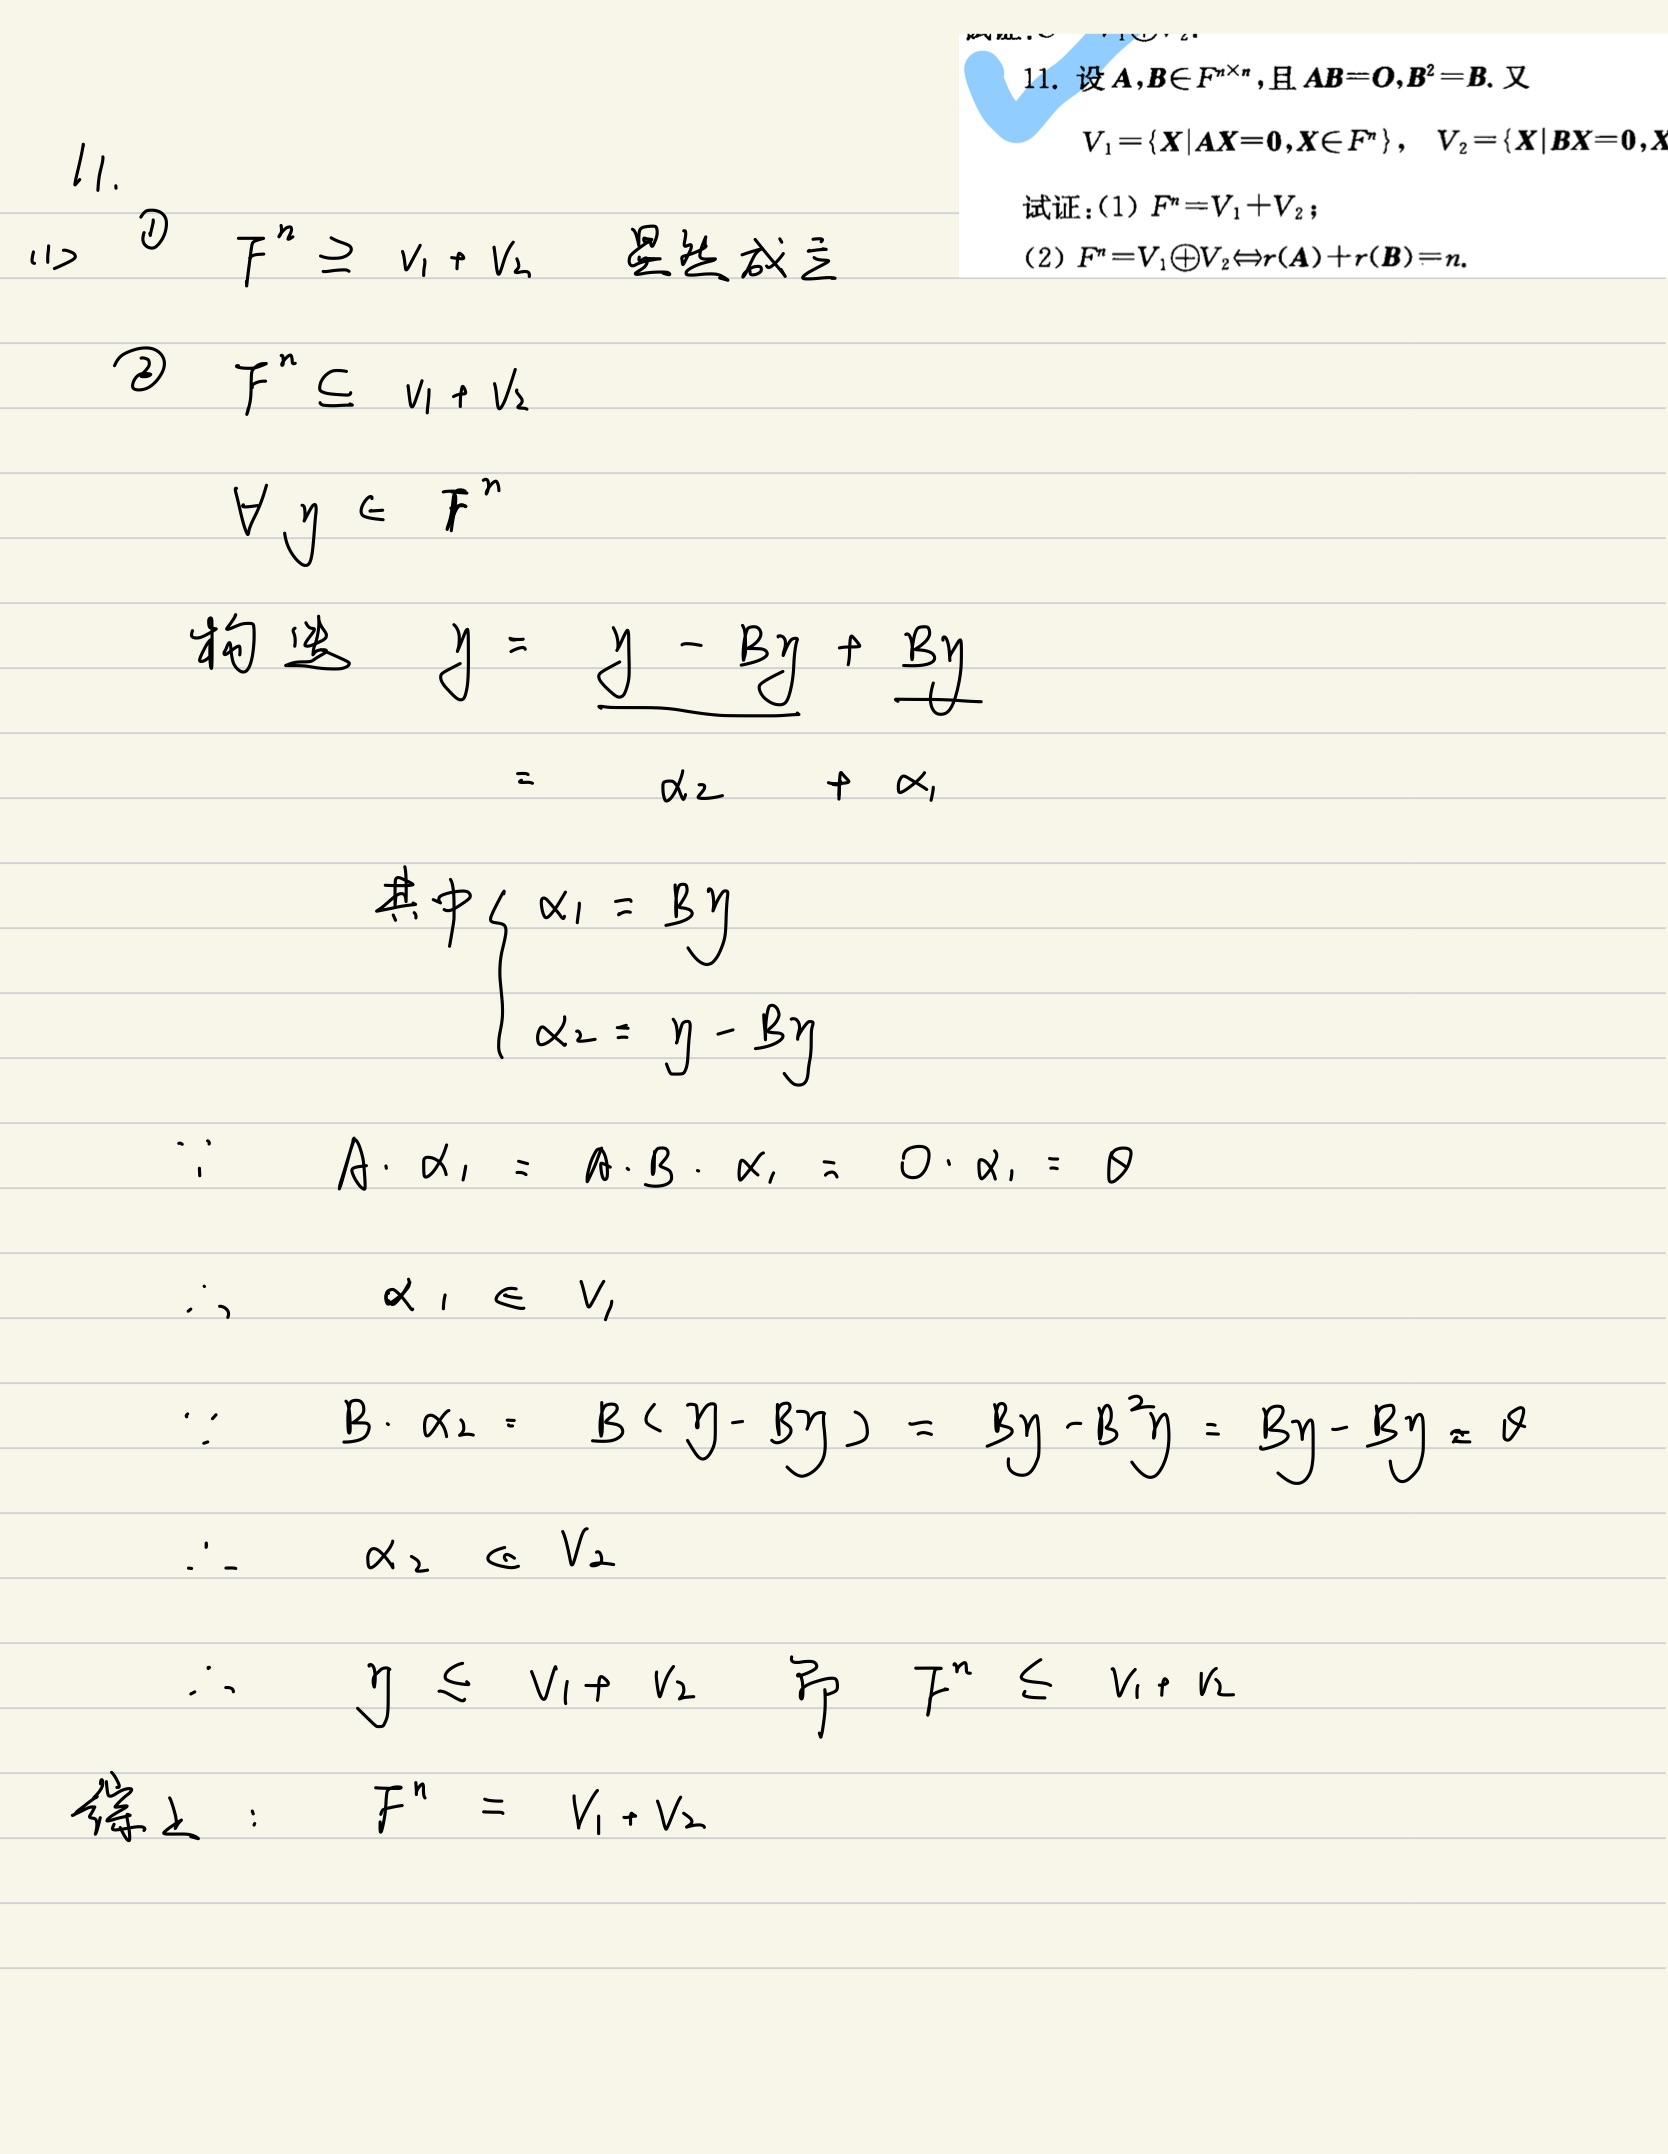 11. 设 A,B∈Fⁿˣⁿ,且 AB=O,B²=B. 又
V₁={X|AX=0,X∈Fⁿ}, V₂={X|BX=0,X
试证:(1) Fⁿ=V₁+V₂;
(2) Fⁿ=V₁⊕V₂⇔r(A)+r(B)=n.
11.
(1) ① Fⁿ ⊇ V₁ + V₂ 显然成立
② Fⁿ ⊆ V₁ + V₂
∀ η ∈ Fⁿ
构造 η = η - Bη + Bη
= α₂ + α₁
其中 { α₁ = Bη
α₂ = η - Bη
∵ A · α₁ = A · B · α₁ = O · α₁ = θ
∴ α₁ ∈ V₁
∵ B · α₂ = B(η - Bη) = Bη - B²η = Bη - Bη = θ
∴ α₂ ∈ V₂
∴ η ⊆ V₁ + V₂ 即 Fⁿ ⊆ V₁ + V₂
综上: Fⁿ = V₁ + V₂